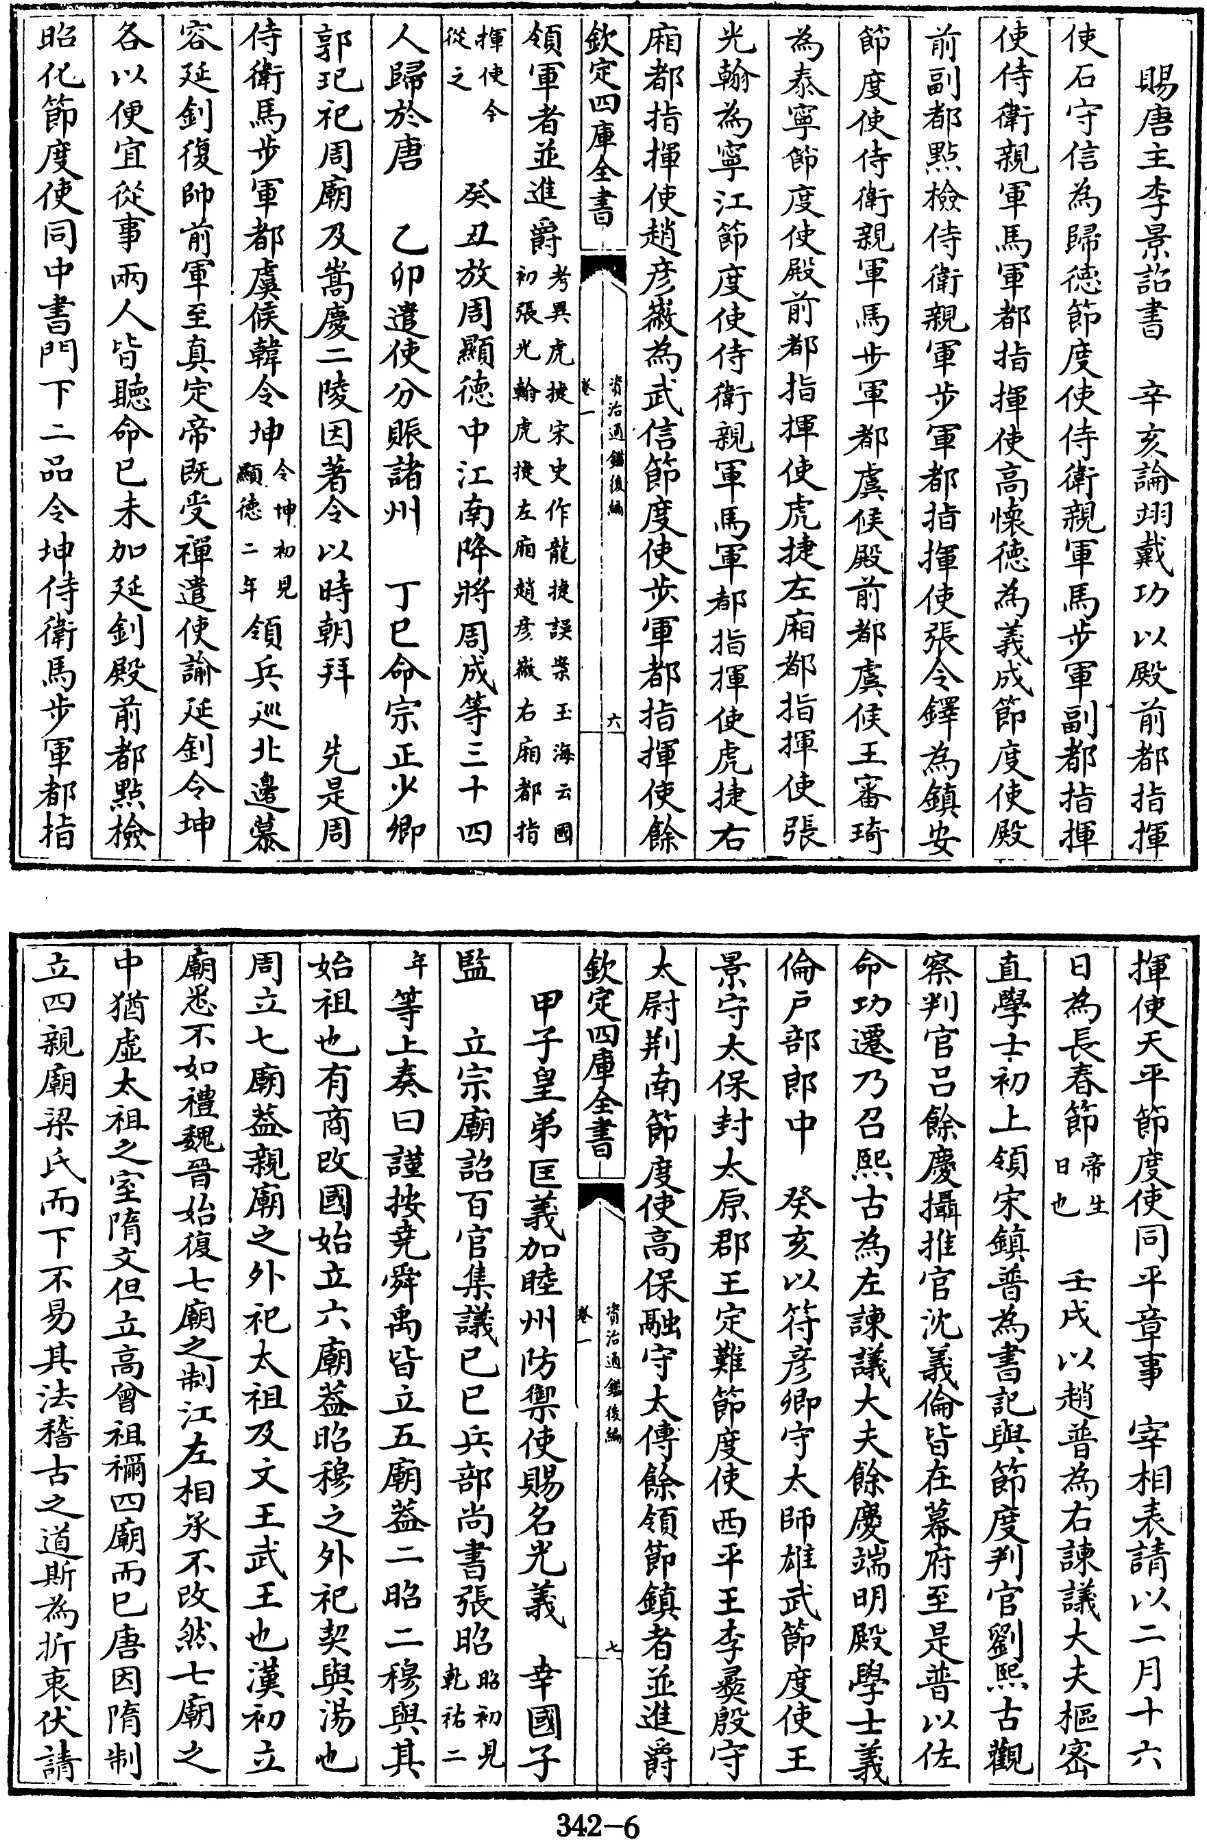 賜唐主李景詔書　辛亥論翊戴功以殿前都指揮
使石守信為歸徳節度使侍衛親軍馬步軍副都指揮
使侍衛親軍馬軍都指揮使高懐徳為義成節度使殿
前副都點檢侍衛親軍步軍都指揮使張令鐸為鎮安
節度使侍衛親軍馬步軍都虞候殿前都虞候王審琦
為泰寧節度使殿前都指揮使虎捷左廂都指揮使張
光翰為寧江節度使侍衛親軍馬軍都指揮使虎捷右
廂都指揮使趙彦徽為武信節度使步軍都指揮使餘
欽定四庫全書
資治通鑑後編
卷一
六
領軍者並進爵考異虎捷宋史作龍捷誤案玉海云國
初張光翰虎捷左廂趙彦徽右廂都指
揮使今
從之　癸丑放周顯德中江南降將周成等三十四
人歸於唐　乙卯遣使分賑諸州　丁巳命宗正少卿
郭玘祀周廟及嵩慶二陵因著令以時朝拜　先是周
侍衛馬步軍都虞候韓令坤令坤初見
顯徳二年領兵巡北邊慕
容延釗復帥前軍至真定帝既受禪遣使諭延釗令坤
各以便宜從事兩人皆聽命已未加延釗殿前都點檢
昭化節度使同中書門下二品令坤侍衛馬步軍都指
揮使天平節度使同平章事　宰相表請以二月十六
日為長春節帝生
日也　壬戌以趙普為右諫議大夫樞密
直學士初上領宋鎮普為書記與節度判官劉熙古觀
察判官呂餘慶攝推官沈義倫皆在幕府至是普以佐
命功遷乃召熙古為左諫議大夫餘慶端明殿學士義
倫戶部郎中　癸亥以符彦卿守太師雄武節度使王
景守太保封太原郡王定難節度使西平王李彜殷守
太尉荆南節度使高保融守太傅餘領節鎮者並進爵
欽定四庫全書
資治通鑑後編
卷一
七
甲子皇弟匡義加睦州防禦使賜名光義　幸國子
監　立宗廟詔百官集議已巳兵部尚書張昭昭初見
乾祐二
年等上奏曰謹按堯舜禹皆立五廟葢二昭二穆與其
始祖也有商改國始立六廟葢昭穆之外祀契與湯也
周立七廟葢親廟之外祀太祖及文王武王也漢初立
廟悉不如禮魏晉始復七廟之制江左相承不改然七廟之
中猶虛太祖之室隋文但立高曾祖禰四廟而已唐因隋制
立四親廟梁氏而下不易其法稽古之道斯為折衷伏請
342-6